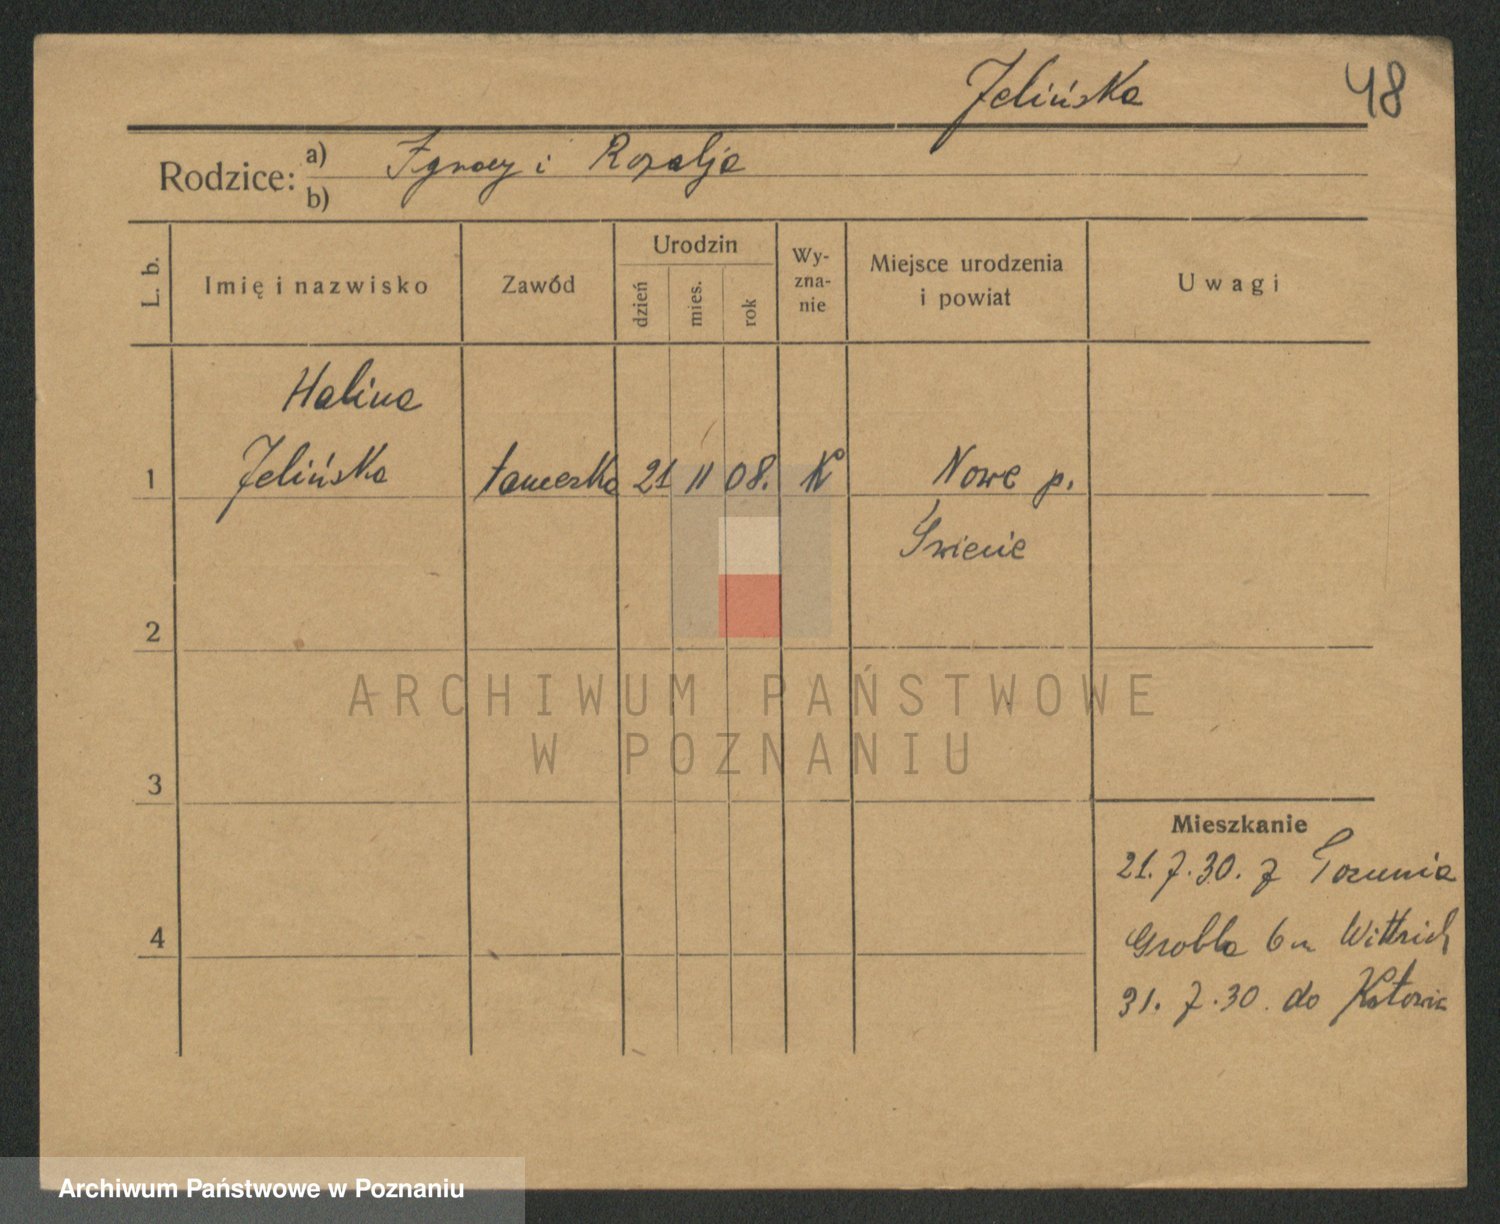 Jelińska 48
Rodzice: a) Ignacy i Rozalja
b)
L. b. Imię i nazwisko Zawód Urodzin dzień mies. rok Wy-zna-nie Miejsce urodzenia i powiat Uwagi
Halina
1 Jelińska tancerka 21 11 08. K Nowe p.
Świecie
2
ARCHIWUM PAŃSTWOWE
W POZNANIU
3
Mieszkanie
21. 7. 30. z Torunia
4 Grobla 6 m Wittrich
31. 7. 30. do Katowic
Archiwum Państwowe w Poznaniu